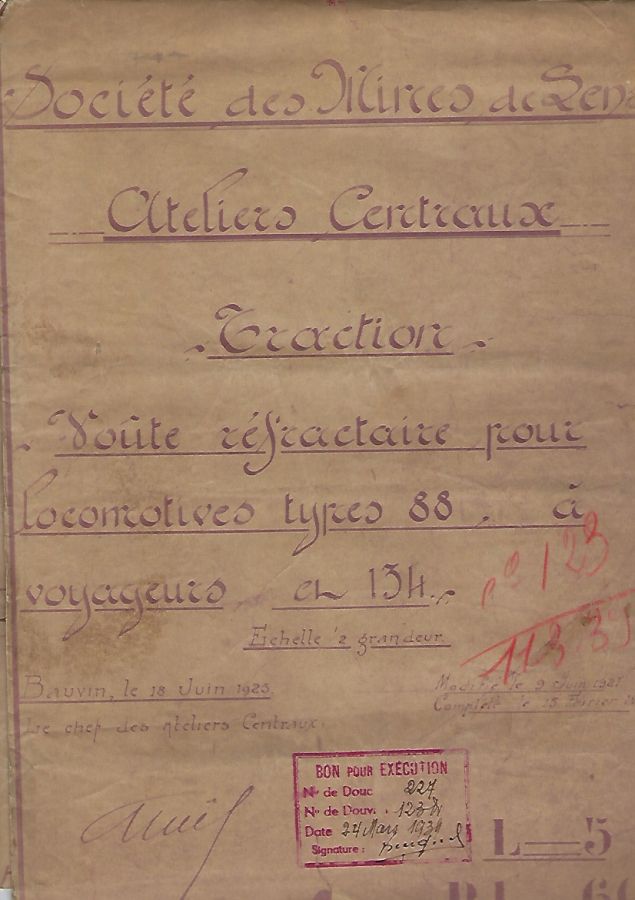 Société des Mines de Lens
Ateliers Centraux
Traction
Voûte réfractaire pour
locomotives types 88. à
voyageurs et 134.
n° 123
Echelle ½ grandeur
113.39
Bauvin, le 18 Juin 1925.
Modifié le 9 Juin 1927
Complété le 25 Février
Le chef des Ateliers Centraux.
BON POUR EXÉCUTION
N° de Douc 227
N° de Douv.
Date 24 Mars 1931
Signature :
L=5